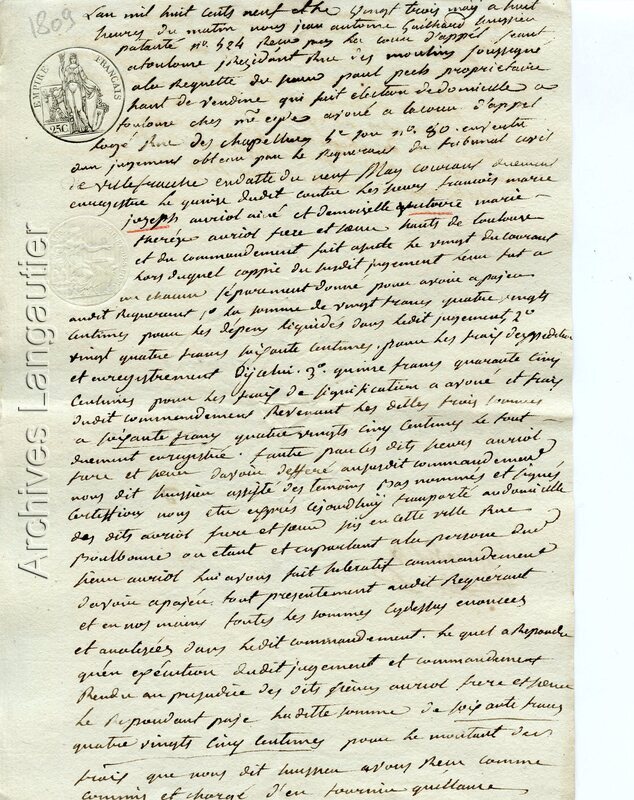 1809
EMPIRE FRANÇAIS
25C
Archives Langautier
L'an mil huit cents neuf et le Vingt trois may a huit
heures du matin nous jean antoine Guilhard huissier
patanté n°. 524 Reçu par la cour d'appel séant
a toulouse y Residant Rue des moulins soussigné
a la Requette du sieur paul pech propriétaire
hant de Vendine qui fait élection de domicille a
toulouse chés mé espie avoué a la cour d'appel
logé Rue des chapelliers n°. 80. en vertu
d'un jugement obtenu par le Requerant du tribunal civil
de Villefranche en datte du neuf May courant duement
enregistré le quinze dudit contre les sieurs françois marie
joseph auriol ainé et demoiselle marie
therèze auriol frere et sœur hants de toulouse
et du commandement fait apute le vingt du courant
lors duquel coppie du susdit jugement leur fut a
un chacun séparement donné pour avoir a payer
audit Requerant 1°. la somme de vingt francs quatre vingts
centimes pour les depens liquidés dans ledit jugement 2°
vingt quatre francs soixante centimes pour les frais d'expedition
et enregistrement d'icelui. 3°. quinze francs quarante cinq
centimes pour les frais de signification a avoué et frais
dudit commandement Revenant les dittes trois sommes
a soixante francs quatre vingts cinq centimes le tout
duement enregistré. faute par les dits sieurs auriol
frere et sœur d'avoir defferé au susdit commandement
nous dit huissier assisté des temoins bas nommés et signés
certiffions nous etre exprès cejourd'huy transporté au domicille
des dits auriol frere et sœur sis en cette ville Rue
Boulbonne ou etant et en parlant a la personne du
sieur auriol lui avons fait iteratif commandement
d'avoir a payer tout presentement audit Requérant
et en nos mains toutes les sommes cydessus enoncées
et analisées dans ledit commandement. Le quel a Repondu
qu'en exécution dudit jugement et commandement
Rendu au prejudice des dits sieurs auriol frere et sœur
le Repondant paye laditte somme de soixante francs
quatre vingts cinq centimes pour le montant des
frais que nous dit huissier avons Reçu comme
commis et chargé d'en fournir quittance